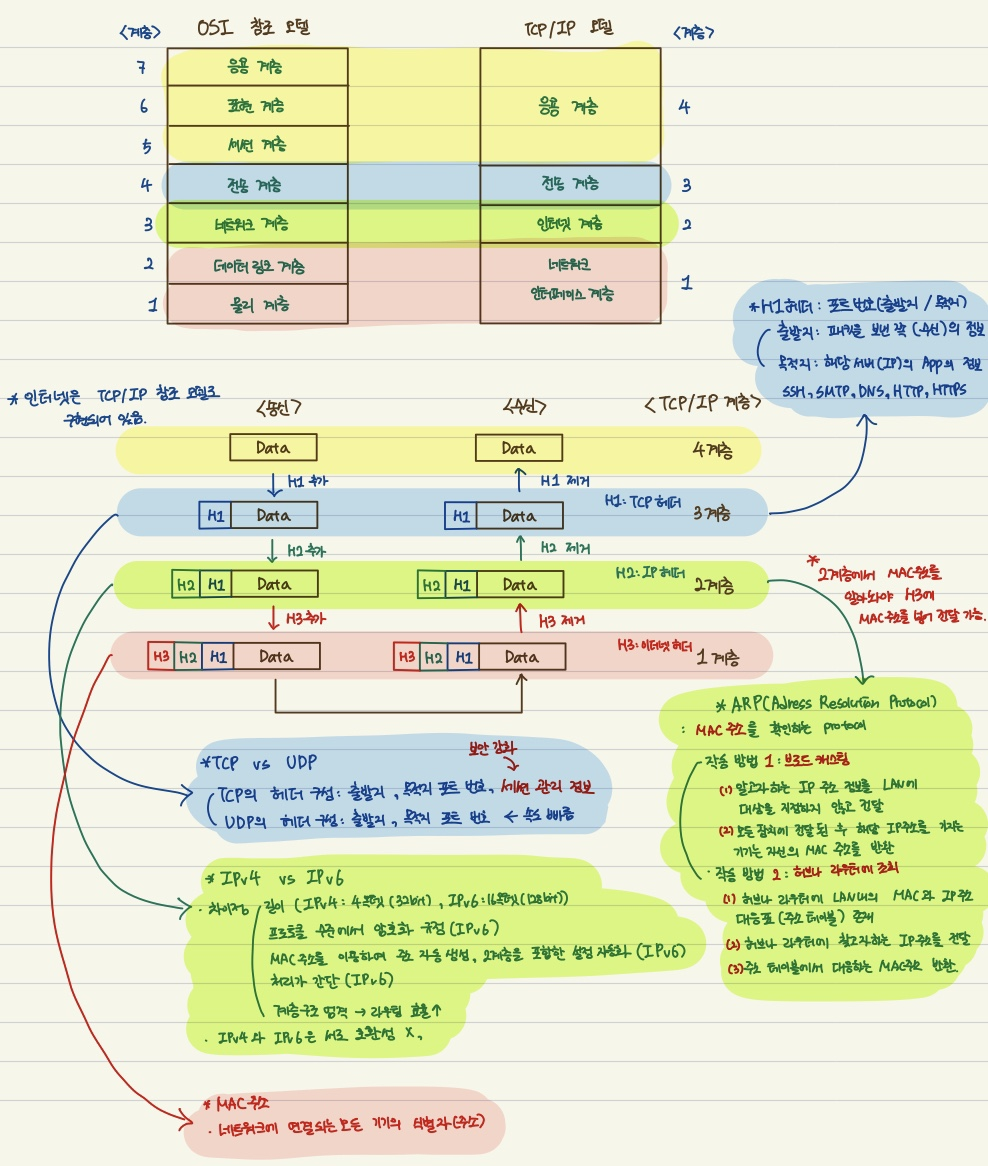 OSI 참조 모델
TCP/IP 모델
<계층>
<계층>
7
응용 계층
6
표현 계층
응용 계층
4
5
세션 계층
4
전송 계층
전송 계층
3
3
네트워크 계층
인터넷 계층
2
2
데이터 링크 계층
네트워크
인터페이스 계층
1
1
물리 계층
*H1헤더: 포트 번호(출발지 / 목적지)
출발지: 패킷을 보낸 쪽 (수신)의 정보
목적지: 해당 서버(IP)의 App의 정보
SSH, SMTP, DNS, HTTP, HTTPS
* 인터넷은 TCP/IP 참조 모델로
구현되어 있음.
<송신>
<수신>
<TCP/IP 계층>
Data
Data
4계층
H1 추가
H1 제거
H1 Data
H1 Data
H1: TCP 헤더
3계층
H2추가
H2 제거
H2 H1 Data
H2 H1 Data
H2: IP헤더
2계층
H3추가
H3 제거
H3 H2 H1 Data
H3 H2 H1 Data
H3: 이더넷 헤더
1계층
*
2계층에서 MAC주소를
알아와야 H3에
MAC주소를 넣어 전달 가능.
*ARP(Adress Resolution Protocol)
: MAC 주소를 확인하는 protocol
작동 방법 1: 브로드 캐스팅
(1) 알고자하는 IP 주소 정보를 LAN에
대상을 지정하지 않고 전달
(2) 모든 장치에 전달된 후 해당 IP주소를 가지는
기기는 자신의 MAC 주소를 반환
· 작동 방법 2: 허브나 라우터에 조회
(1) 허브나 라우터에 LAN내의 MAC과 IP주소
대응표 (주소 테이블) 존재
(2) 허브나 라우터에 찾고자하는 IP주소를 전달
(3)주소 테이블에서 대응하는 MAC주소 반환.
*TCP vs UDP
보안 강화
TCP의 헤더 구성: 출발지, 목적지 포트 번호, 세션 관리 정보
UDP의 헤더 구성: 출발지, 목적지 포트 번호 ← 속도 빠름
* IPv4 vs IPv6
· 차이점 길이 (IPv4: 4옥텟(32bit), IPv6:16옥텟(128bit))
프로토콜 수준에서 암호화 규정 (IPv6)
MAC주소를 이용하여 주소 자동 생성, 2계층을 포함한 설정 자동화 (IPv6)
처리가 간단 (IPv6)
계층구조 엄격 → 라우팅 효율↑
· IPv4와 IPv6은 서로 호환성 X,
* MAC 주소
· 네트워크에 연결되는 모든 기기의 식별자(주소)